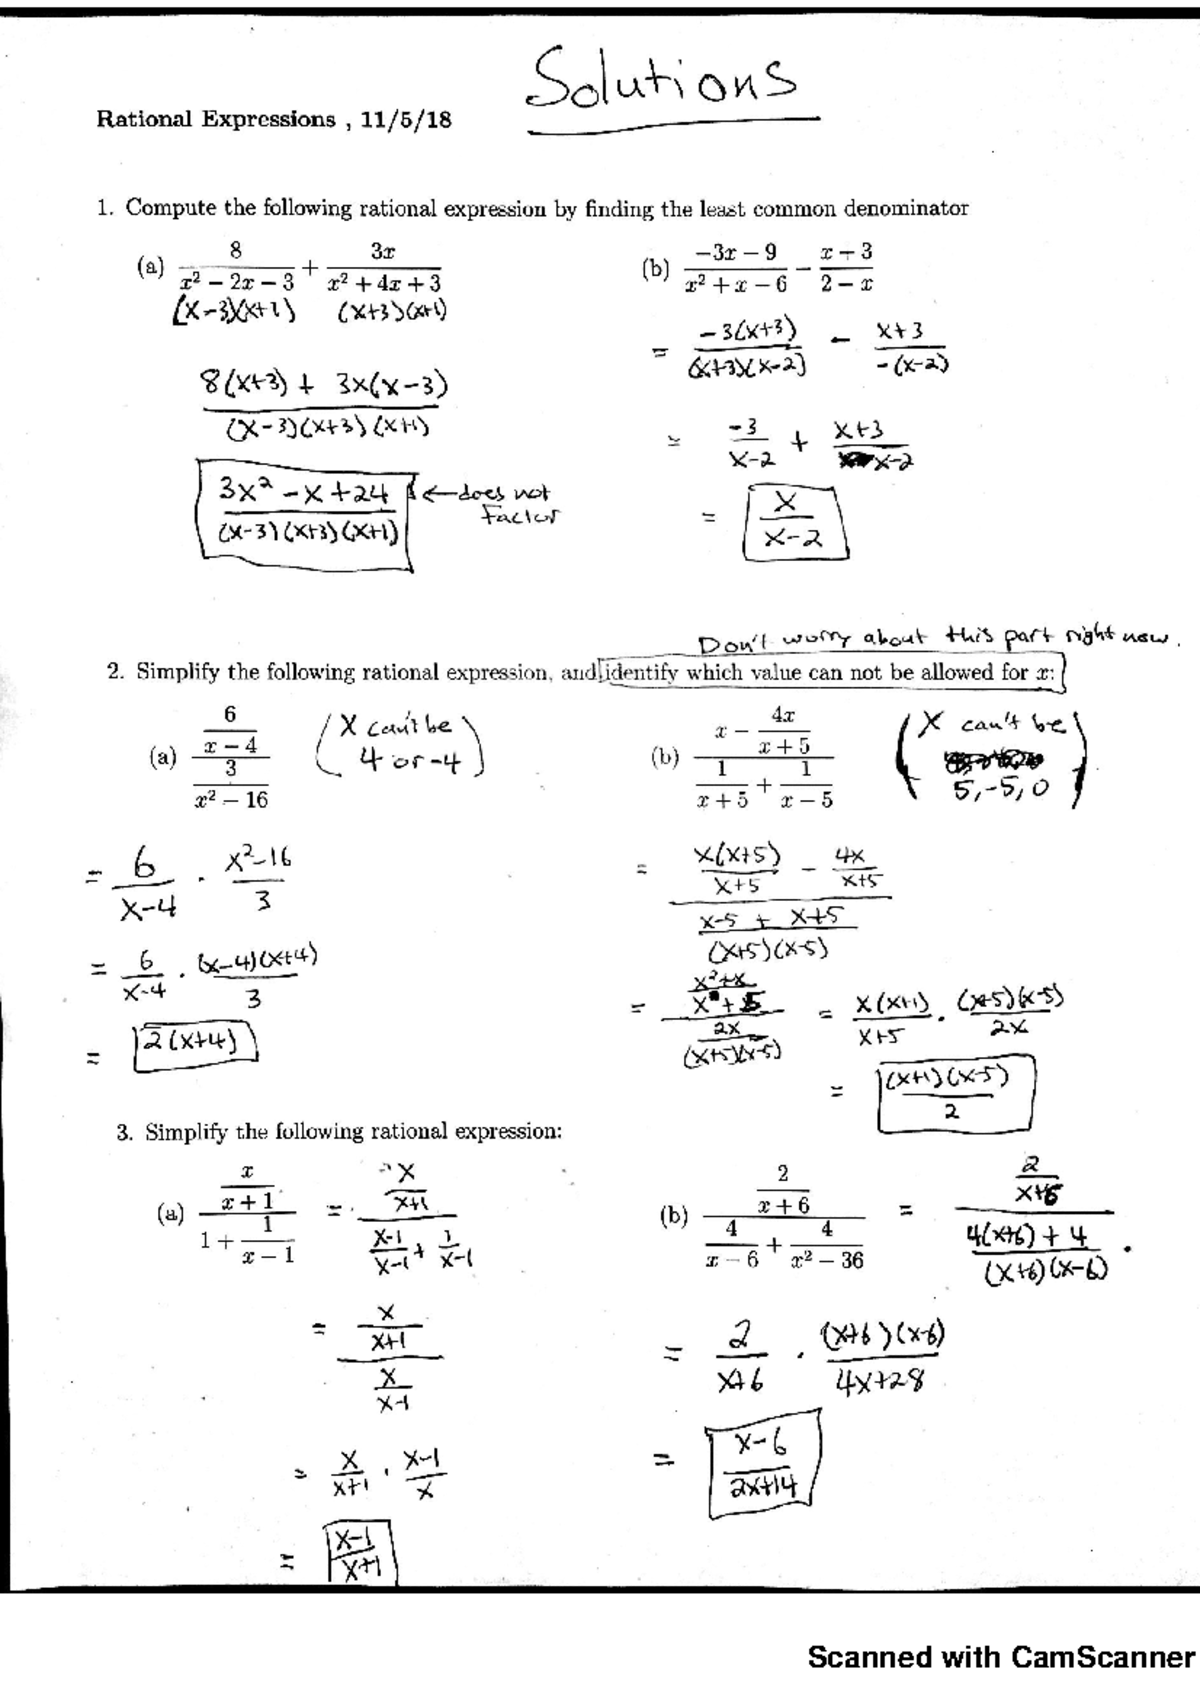 Solutions
Rational Expressions , 11/5/18
1. Compute the following rational expression by finding the least common denominator
(a) 8/(x² − 2x − 3) + 3x/(x² + 4x + 3)
(x-3)(x+1) (x+3)(x+1)
(8(x+3) + 3x(x-3))/((x-3)(x+3)(x+1))
(3x² - x + 24)/((x-3)(x+3)(x+1)) ← does not Factor
(b) (−3x − 9)/(x² + x − 6) − (x + 3)/(2 − x)
= -3(x+3)/((x+3)(x-2)) - (x+3)/(-(x-2))
= -3/(x-2) + (x+3)/(x-2)
= x/(x-2)
Don't worry about this part right now.
2. Simplify the following rational expression, and identify which value can not be allowed for x:
(a) (6/(x − 4))/(3/(x² − 16))
(x can't be 4 or -4)
= 6/(x-4) · (x²-16)/3
= 6/(x-4) · (x-4)(x+4)/3
= 2(x+4)
(b) (x − 4x/(x + 5))/(1/(x + 5) + 1/(x − 5))
(x can't be 5, -5, 0)
= (x(x+5)/(x+5) - 4x/(x+5))/((x-5 + x+5)/((x+5)(x-5)))
= ((x²+x)/(x+5))/(2x/((x+5)(x-5))) = x(x+1)/(x+5) · (x+5)(x-5)/2x
= (x+1)(x-5)/2
3. Simplify the following rational expression:
(a) (x/(x + 1))/(1 + 1/(x − 1)) = (x/(x+1))/((x-1)/(x-1) + 1/(x-1))
= (x/(x+1))/(x/(x-1))
= x/(x+1) · (x-1)/x
= (x-1)/(x+1)
(b) (2/(x + 6))/(4/(x − 6) + 4/(x² − 36)) = (2/(x+6))/((4(x+6) + 4)/((x+6)(x-6))).
= 2/(x+6) · (x+6)(x-6)/(4x+28)
= (x-6)/(2x+14)
Scanned with CamScanner